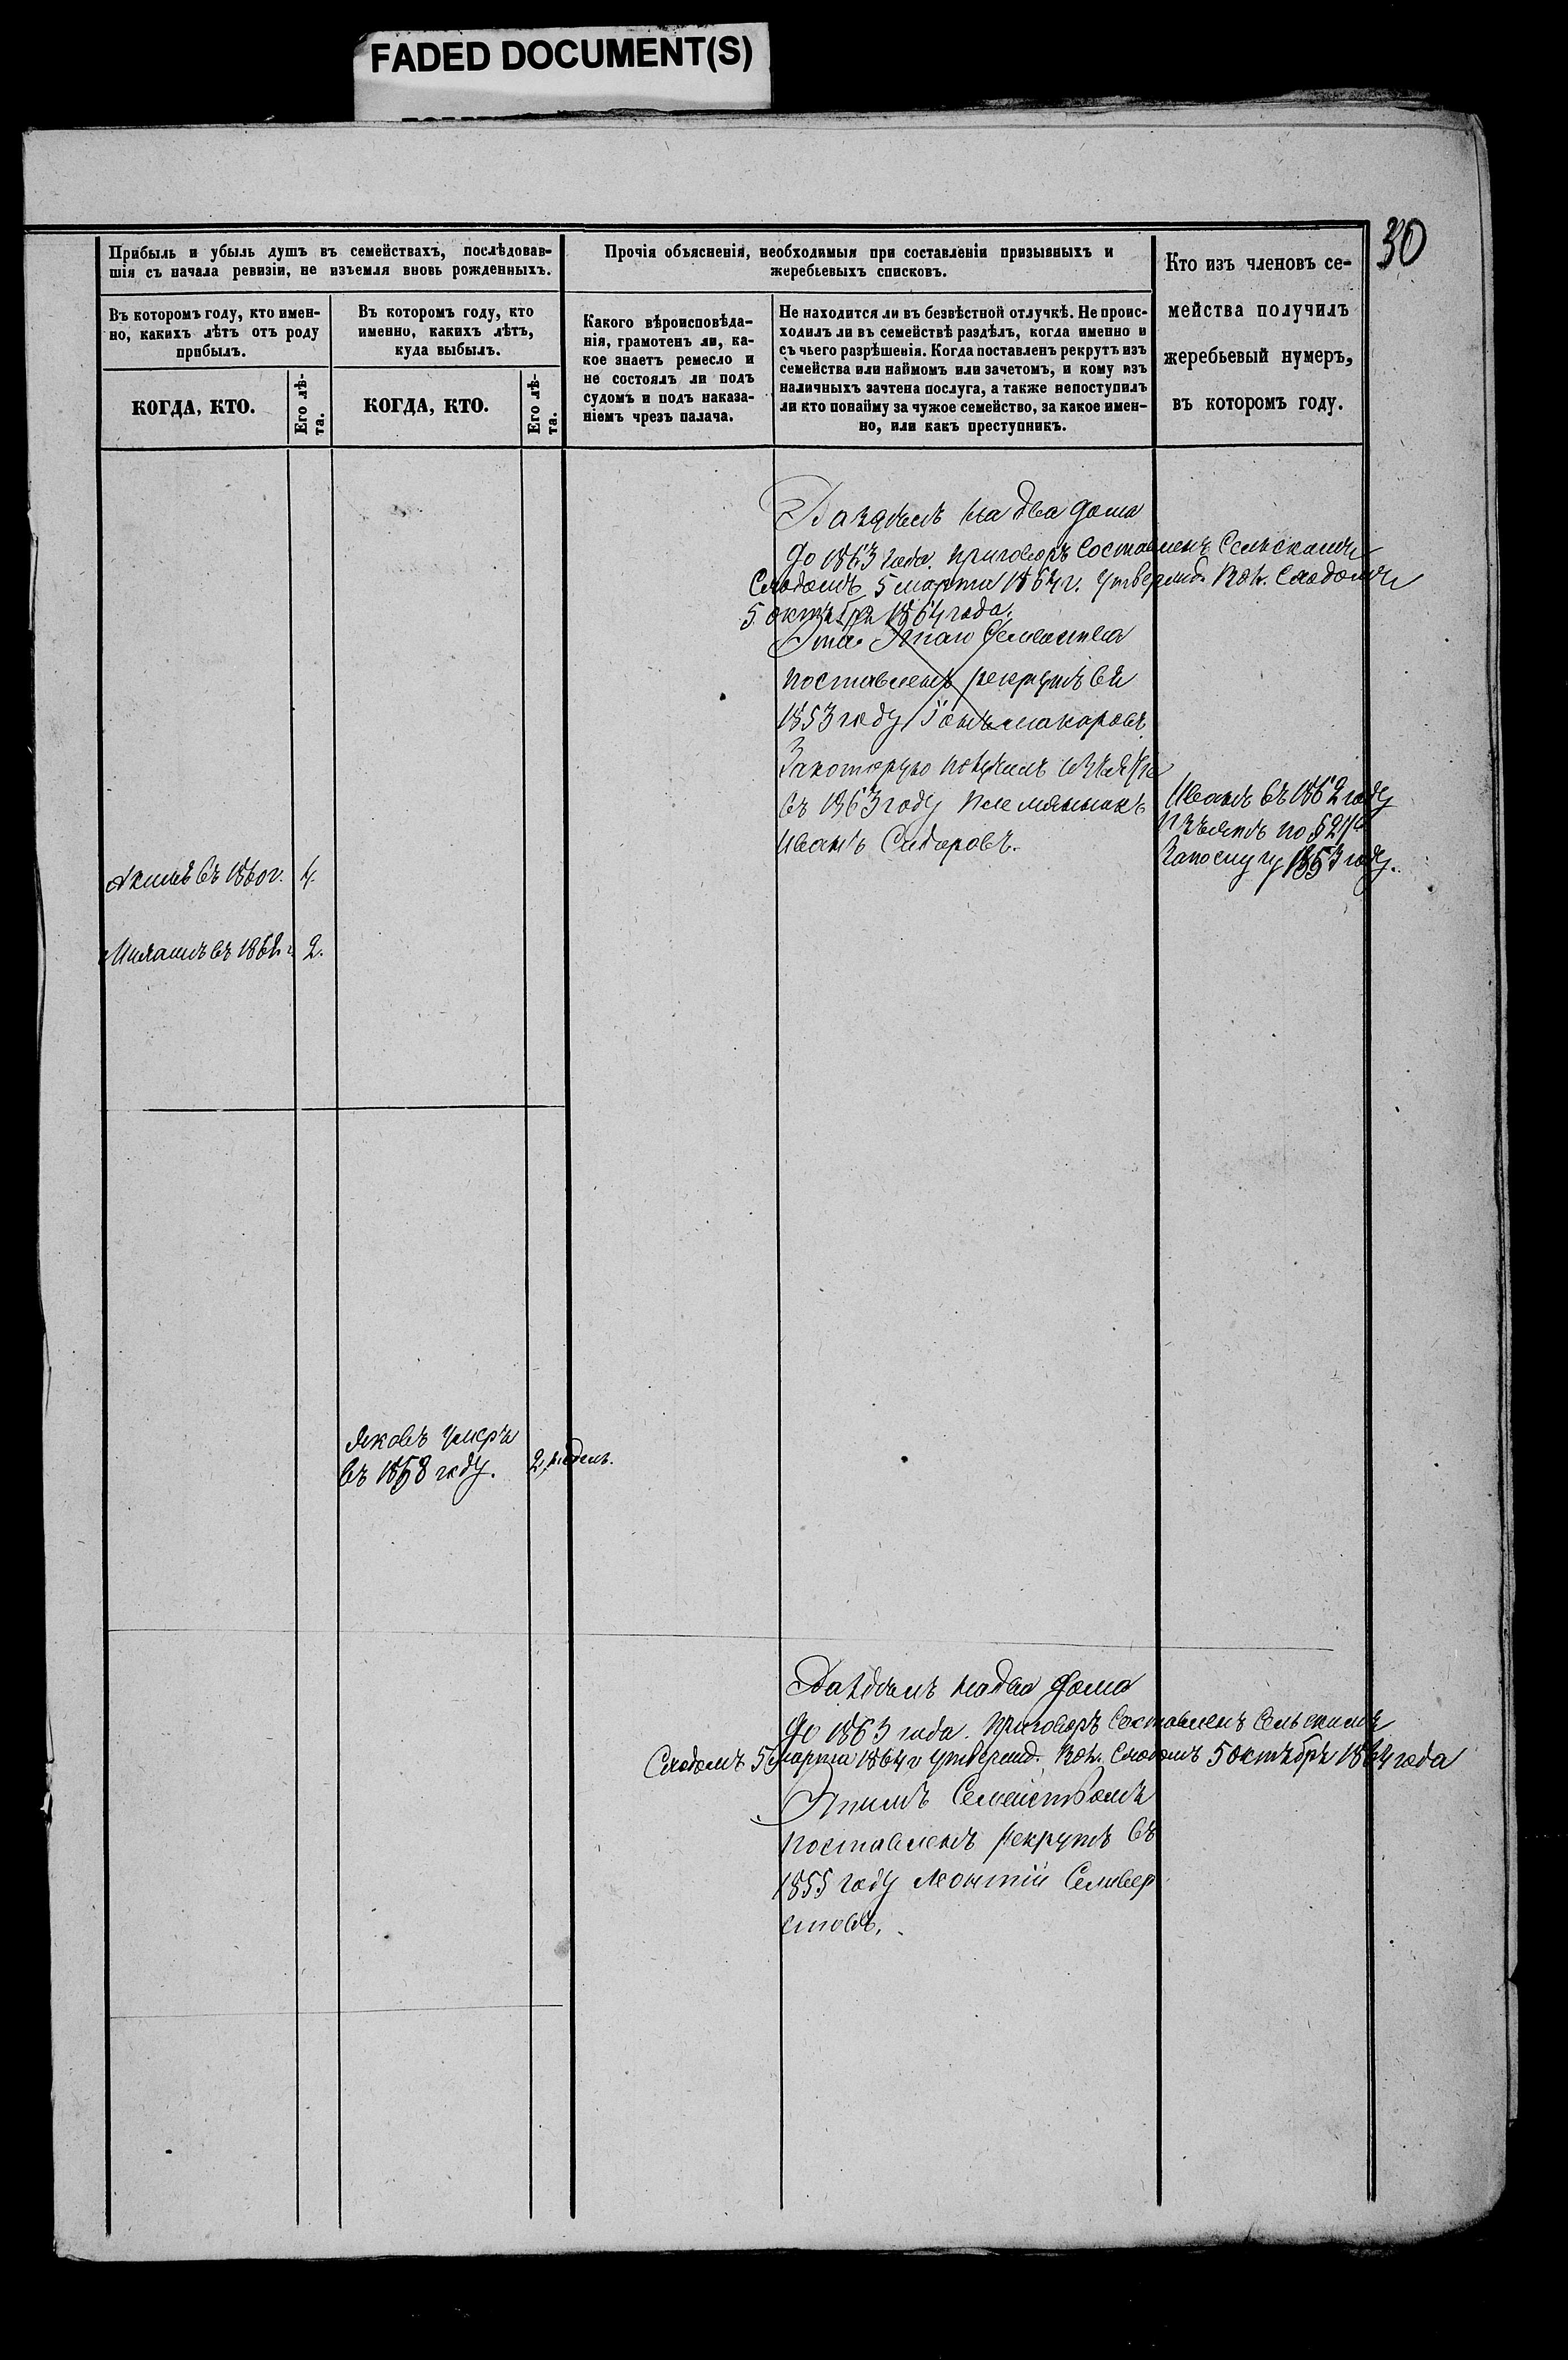 FADED DOCUMENT(S)
30
Прибыль и убыль душъ въ семействахъ, послѣдовав-
шія съ начала ревизіи, не изъемля вновь рожденныхъ.
Въ которомъ году, кто имен-
но, какихъ лѣтъ отъ роду
прибылъ.
КОГДА, КТО.
Его лѣ-
та.
Въ которомъ году, кто
именно, какихъ лѣтъ,
куда выбылъ.
КОГДА, КТО.
Его лѣ-
та.
Прочія объясненія, необходимыя при составленіи призывныхъ и
жеребьевыхъ списковъ.
Какого вѣроисповѣда-
нія, грамотенъ ли, ка-
кое знаетъ ремесло и
не состоялъ ли подъ
судомъ и подъ наказа-
ніемъ чрезъ палача.
Не находится ли въ безвѣстной отлучкѣ. Не проис-
ходилъ ли въ семействѣ раздѣлъ, когда именно и
съ чьего разрѣшенія. Когда поставленъ рекрутъ изъ
семейства или наймомъ или зачетомъ, и кому изъ
наличныхъ зачтена послуга, а также непоступилъ
ли кто понайму за чужое семейство, за какое имен-
но, или какъ преступникъ.
Кто изъ членовъ се-
мейства получилъ
жеребьевый нумеръ,
въ которомъ году.
на два дома
до 1863 года. приговоръ Составленъ Сельскимъ
Сходомъ 5 марта 1864 г. Утвержд. Вол. Сходомъ
5 октября 1864 года.
Семейства
поставленъ рекрутъ въ
1853 году
Закоторую получилъ
въ 1863 году племянникъ
Иванъ Сидоровъ.
Иванъ въ 1862 году
Изъятъ по §
Запослугу 1853 году.
Акимъ въ 1860 г. 4.
въ 1862 2.
Яковъ умеръ
въ 1858 году. 2 недель.
надва дома
до 1863 года. Приговоръ Составленъ Сельскимъ
Сходомъ 5 марта 1864 г Утвержд. Вол. Сходомъ 5 октября 1864 года
Этимъ Семействомъ
поставленъ рекрутъ въ
1855 году Леонтій Селивер
стовъ.